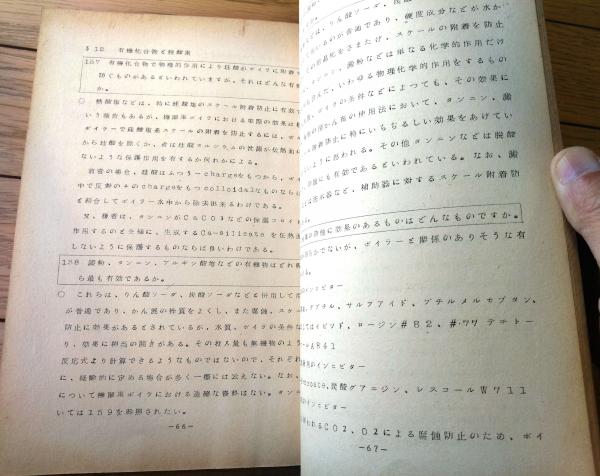 §10 有機化合物と脱酸素
157 有機化合物で物理的作用により硅酸がボイラに附着
防ぐものがあるといわれていますが、それはどんな有
か。
○ 燐酸塩などは、特に硅酸塩のスケール附着防止に有効で
いう報告もあるが、機関車ボイラにおける実際の効果は
ボイラーで硅酸塩系スケールの附着を防止するには、ボ
から硅酸を除くか、或は硅酸カルシウムの沈澱が伝熱面
ないような保護作用を有するか何れかによる。
前者の場合、硅酸はふつう－chargeをもつから、ボイ
中で反対の＋のchargeをもつcolloidalなものならば
と結合してボイラー水中から除去出来るわけである。
又、後者は、タンニンがCaCO3などの保護コロイド
作用するのと全様に、生成するCa-silicateを伝熱
しないように保護するものならば良いわけである。
158 澱粉、タンニン、アルギン酸塩などの有機物はどれ
ら最も有効であるか。
○ これらは、りん酸ソーダ、炭酸ソーダなどと併用して
が普通であり、かん泥の性質をよくし、また腐蝕、スケ
防止に効果があるとされているが、水質、ボイラの条件な
り、効果に相当の開きがある。その投入量も無機物のよう
反応式より計算できるようなものではないので、それぞれ
に、経験的に定める場合が多く一概には云えない。なお、
について機関車ボイラにおける適確な資料はない。タン
いては159を参照されたい。
－66－
は、りん酸ソーダ、炭酸
いるのが普通であり、硬度成分などが水か
晶化をさまたげ、スケールの附着を防止
ンニン、澱粉などは単なる化学的作用だけ
えた、いわゆる物理化学的作用をするもの
、ボイラの条件などによつても、その効果に
の清かん剤の使用法において、タンニン、澱
附着防止に特にいちぢるしい効果をあげてい
ように思われる。その他タンニンなどは脱酸
蝕にも有効であるといわれている。なお、澱
は注水器など、補助器に対するスケール附着防
の防蝕に効果のあるものはどんなものですか。
らかでないが、ボイラーと関係のありそうな有
る。
のインヒビター
、アクチル、サルフアイド、プチルメルカプタン、
してはイビツド、ロージン＃82、＃77テコトー
A841
のインヒビター
炭酸グアニジン、レスコールW711
のインヒビター
われるCO2、O2による腐蝕防止のため、ボイ
－67－